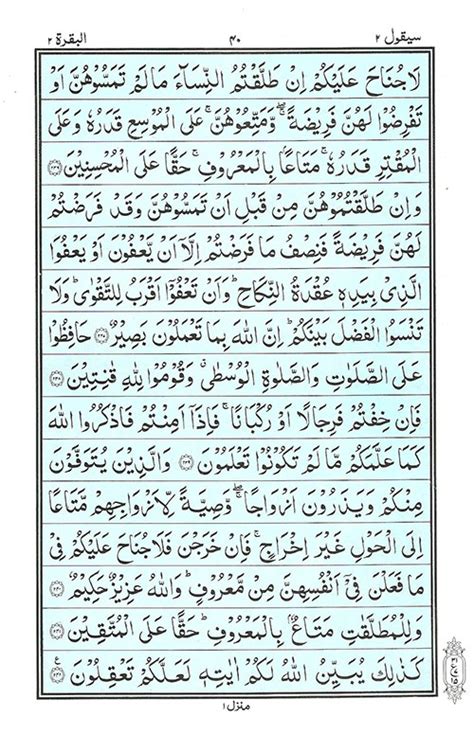 سيقول ٢ ٤٠ البقرة ٢
لَاجُنَاحَ عَلَيْكُمْ اِنْ طَلَّقْتُمُ النِّسَآءَ مَا لَمْ تَمَسُّوْهُنَّ اَوْ
تَفْرِضُوْا لَهُنَّ فَرِيْضَةً ۖۚ وَّمَتِّعُوْهُنَّ ۚ عَلَى الْمُوْسِعِ قَدَرُهٗ وَعَلَى
الْمُقْتِرِ قَدَرُهٗ ۚ مَتَاعًۢا بِالْمَعْرُوْفِ ۚ حَقًّا عَلَى الْمُحْسِنِيْنَ ﴿٢٣٦﴾
وَاِنْ طَلَّقْتُمُوْهُنَّ مِنْ قَبْلِ اَنْ تَمَسُّوْهُنَّ وَقَدْ فَرَضْتُمْ
لَهُنَّ فَرِيْضَةً فَنِصْفُ مَا فَرَضْتُمْ اِلَّاۤ اَنْ يَّعْفُوْنَ اَوْ يَعْفُوَا
الَّذِىْ بِيَدِهٖ عُقْدَةُ النِّكَاحِ ؕ وَاَنْ تَعْفُوْۤا اَقْرَبُ لِلتَّقْوٰى ؕ وَلَا
تَنْسَوُا الْفَضْلَ بَيْنَكُمْ ؕ اِنَّ اللّٰهَ بِمَا تَعْمَلُوْنَ بَصِيْرٌ ﴿٢٣٧﴾ حَافِظُوْا
عَلَى الصَّلَوٰتِ وَالصَّلٰوةِ الْوُسْطٰى ۗ وَقُوْمُوْا لِلّٰهِ قٰنِتِيْنَ ﴿٢٣٨﴾
فَاِنْ خِفْتُمْ فَرِجَالًا اَوْ رُكْبَانًا ۚ فَاِذَاۤ اَمِنْتُمْ فَاذْكُرُوا اللّٰهَ
كَمَا عَلَّمَكُمْ مَّا لَمْ تَكُوْنُوْا تَعْلَمُوْنَ ﴿٢٣٩﴾ وَالَّذِيْنَ يُتَوَفَّوْنَ
مِنْكُمْ وَيَذَرُوْنَ اَزْوَاجًا ۖۚ وَّصِيَّةً لِّاَزْوَاجِهِمْ مَّتَاعًا
اِلَى الْحَوْلِ غَيْرَ اِخْرَاجٍ ۚ فَاِنْ خَرَجْنَ فَلَاجُنَاحَ عَلَيْكُمْ فِىْ
مَا فَعَلْنَ فِىْۤ اَنْفُسِهِنَّ مِنْ مَّعْرُوْفٍ ؕ وَاللّٰهُ عَزِيْزٌ حَكِيْمٌ ﴿٢٤٠﴾
وَلِلْمُطَلَّقٰتِ مَتَاعٌۢ بِالْمَعْرُوْفِ ؕ حَقًّا عَلَى الْمُتَّقِيْنَ ﴿٢٤١﴾
كَذٰلِكَ يُبَيِّنُ اللّٰهُ لَكُمْ اٰيٰتِهٖ لَعَلَّكُمْ تَعْقِلُوْنَ ﴿٢٤٢﴾ ع
منزل ١